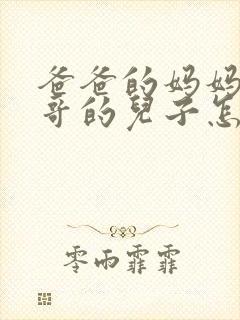 爸爸的妈妈
哥的兒子怎
零雨霏霏